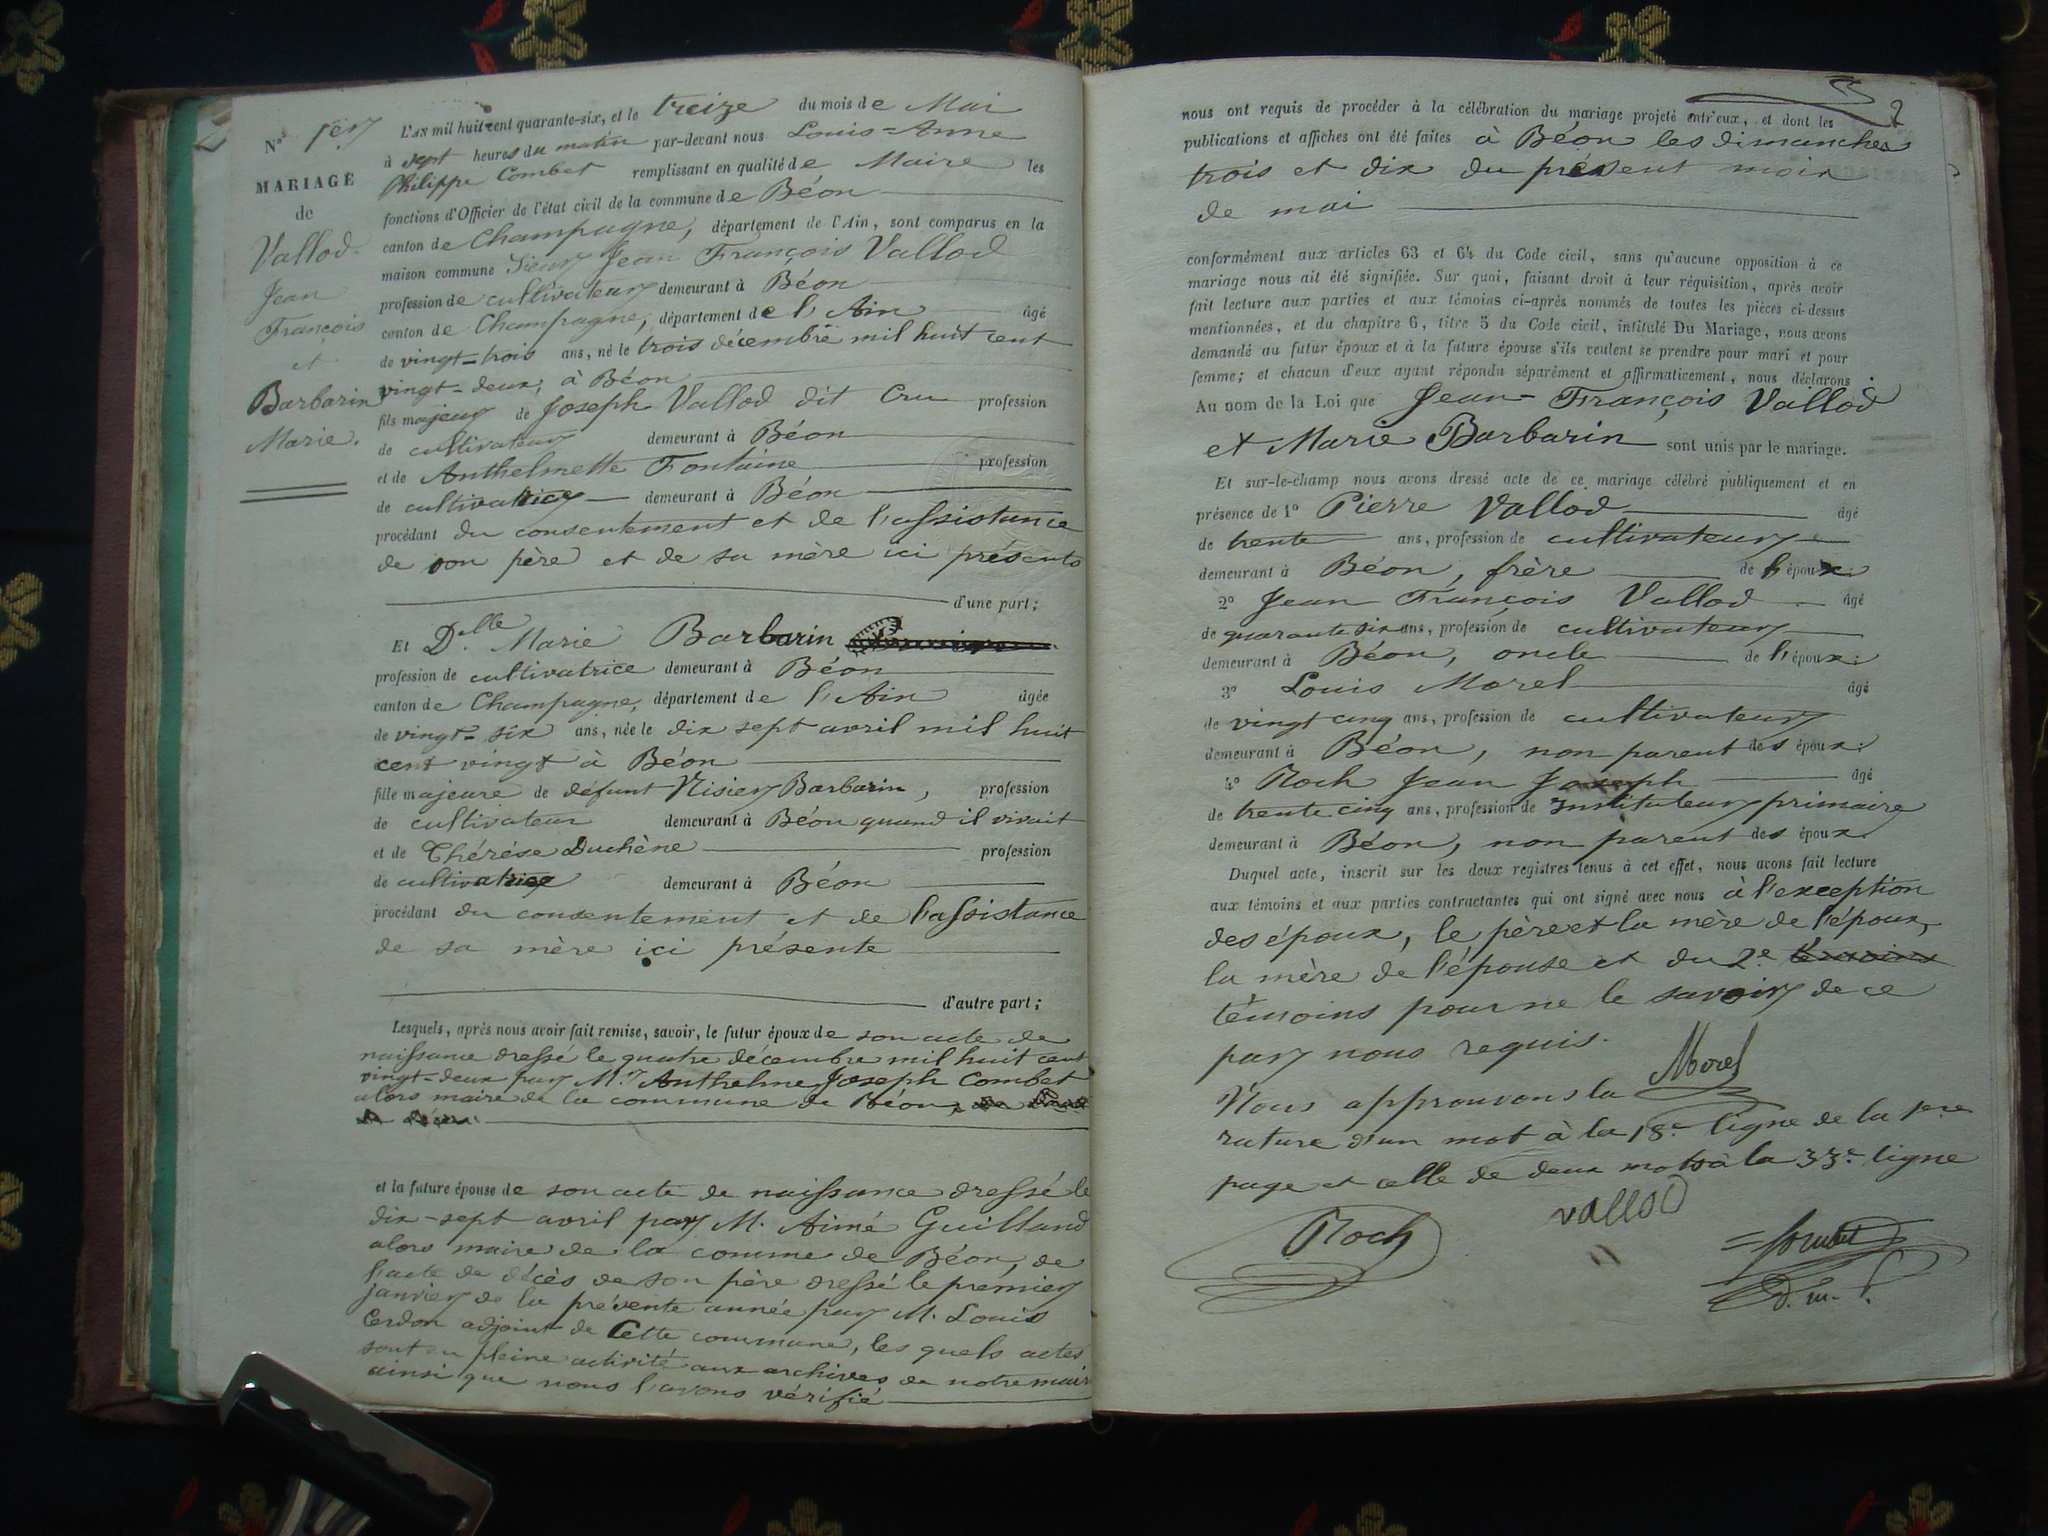 N° 1er
MARIAGE
de
Vallod
Jean
François
et
Barbarin
Marie.
L'AN mil huit cent quarante-six, et le treize du mois de Mai
à sept heures du matin par-devant nous Louis-Anne
Philippe Combet remplissant en qualité de Maire les
fonctions d'Officier de l'état civil de la commune de Béon
canton de Champagne, département de l'Ain, sont comparus en la
maison commune Sieur Jean François Vallod
profession de cultivateur demeurant à Béon
canton de Champagne, département de l'Ain âgé
de vingt-trois ans, né le trois décembre mil huit cent
vingt-deux, à Béon
fils majeur de Joseph Vallod dit Cru profession
de cultivateur demeurant à Béon
et de Anthelmette Fontaine profession
de cultivatrice demeurant à Béon
procédant du consentement et de l'assistance
de son père et de sa mère ici présents
d'une part;
Et Dlle Marie Barbarin
profession de cultivatrice demeurant à Béon
canton de Champagne, département de l'Ain âgée
de vingt-six ans, née le dix sept avril mil huit
cent vingt à Béon
fille majeure de défunt Nisier Barbarin, profession
de cultivateur demeurant à Béon quand il vivait
et de Thérèse Duchène profession
de cultivatrice demeurant à Béon
procédant du consentement et de l'assistance
de sa mère ici présente
d'autre part;
Lesquels, après nous avoir fait remise, savoir, le futur époux de son acte de
naissance dressé le quatre décembre mil huit cent
vingt-deux par M.r Anthelme Joseph Combet
alors maire de la commune de Béon,
et la future épouse de son acte de naissance dressé le
dix-sept avril par M. Aimé Guilland
alors maire de la comme de Béon, de
l'acte de décès de son père dressé le premier
janvier de la présente année par M. Louis
Cerdon adjoint de Cette commune, les quels actes
sont en pleine activité aux archives de notre mairie
ainsi que nous l'avons vérifié
nous ont requis de procéder à la célébration du mariage projeté entr'eux, et dont les
publications et affiches ont été faites à Béon les dimanches
trois et dix du présent mois
de mai
conformément aux articles 63 et 64 du Code civil, sans qu'aucune opposition à ce
mariage nous ait été signifiée. Sur quoi, faisant droit à leur réquisition, après avoir
fait lecture aux parties et aux témoins ci-après nommés de toutes les pièces ci-dessus
mentionnées, et du chapitre 6, titre 5 du Code civil, intitulé Du Mariage, nous avons
demandé au futur époux et à la future épouse s'ils veulent se prendre pour mari et pour
femme; et chacun d'eux ayant répondu séparément et affirmativement, nous déclarons
Au nom de la Loi que Jean-François Vallod
et Marie Barbarin sont unis par le mariage.
Et sur-le-champ nous avons dressé acte de ce mariage célébré publiquement et en
présence de 1° Pierre Vallod âgé
de trente ans, profession de cultivateur
demeurant à Béon, frère de l'époux:
2° Jean François Vallod âgé
de quarante six ans, profession de cultivateur
demeurant à Béon, oncle de l'époux:
3° Louis Morel âgé
de vingt cinq ans, profession de cultivateur
demeurant à Béon, non parent des époux:
4° Roch Jean Joseph âgé
de trente cinq ans, profession de Instituteur primaire
demeurant à Béon, non parent des époux
Duquel acte, inscrit sur les deux registres tenus à cet effet, nous avons fait lecture
aux témoins et aux parties contractantes qui ont signé avec nous à l'exception
des époux, le père et la mère de l'époux,
la mère de l'épouse et du 2e témoins
témoins pour ne le savoir de ce
par nous requis.
Morel
Nous approuvons la
rature d'un mot à la 18e ligne de la 1ere
page et celle de deux mots à la 33e ligne
vallod
Roch
Combet
d. m.